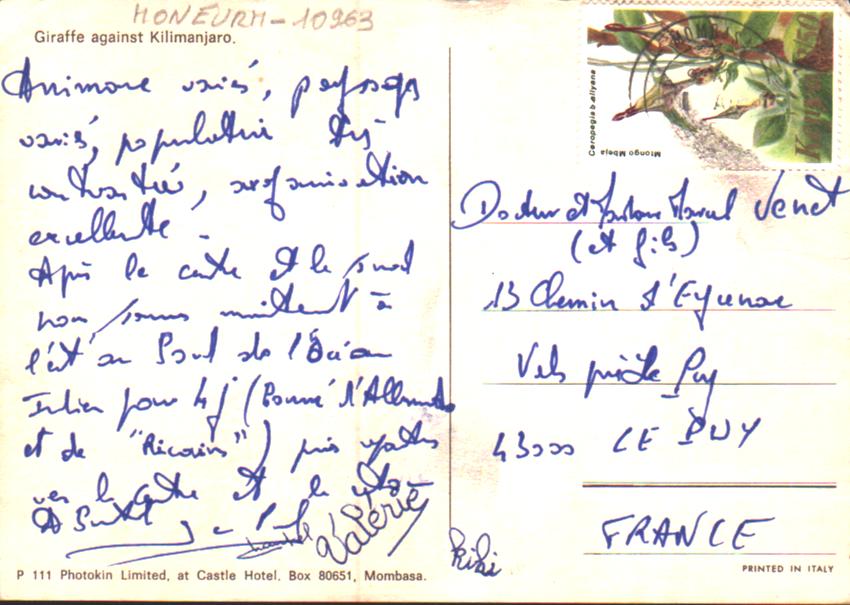 MONEURM-10963
Giraffe against Kilimanjaro.
Animaux variés, paysages
variés, population très
contrastée, organisation
excellente.
Après le centre et le sud
nous sommes maintenant à
l'est au bord de l'Océan
Indien pour 4 j (bourré d'Allemands
et de "Ricains") puis
vers le centre et le
A Bientôt
Chantal
Valérie
Kiki
P 111 Photokin Limited, at Castle Hotel. Box 80651, Mombasa.
Ceropegia ballyana
Mtongo Mbeja
Docteur et Venet
(et fils)
13 Chemin d'Eycenac
Vals près Le Puy
43000 LE PUY
FRANCE
PRINTED IN ITALY